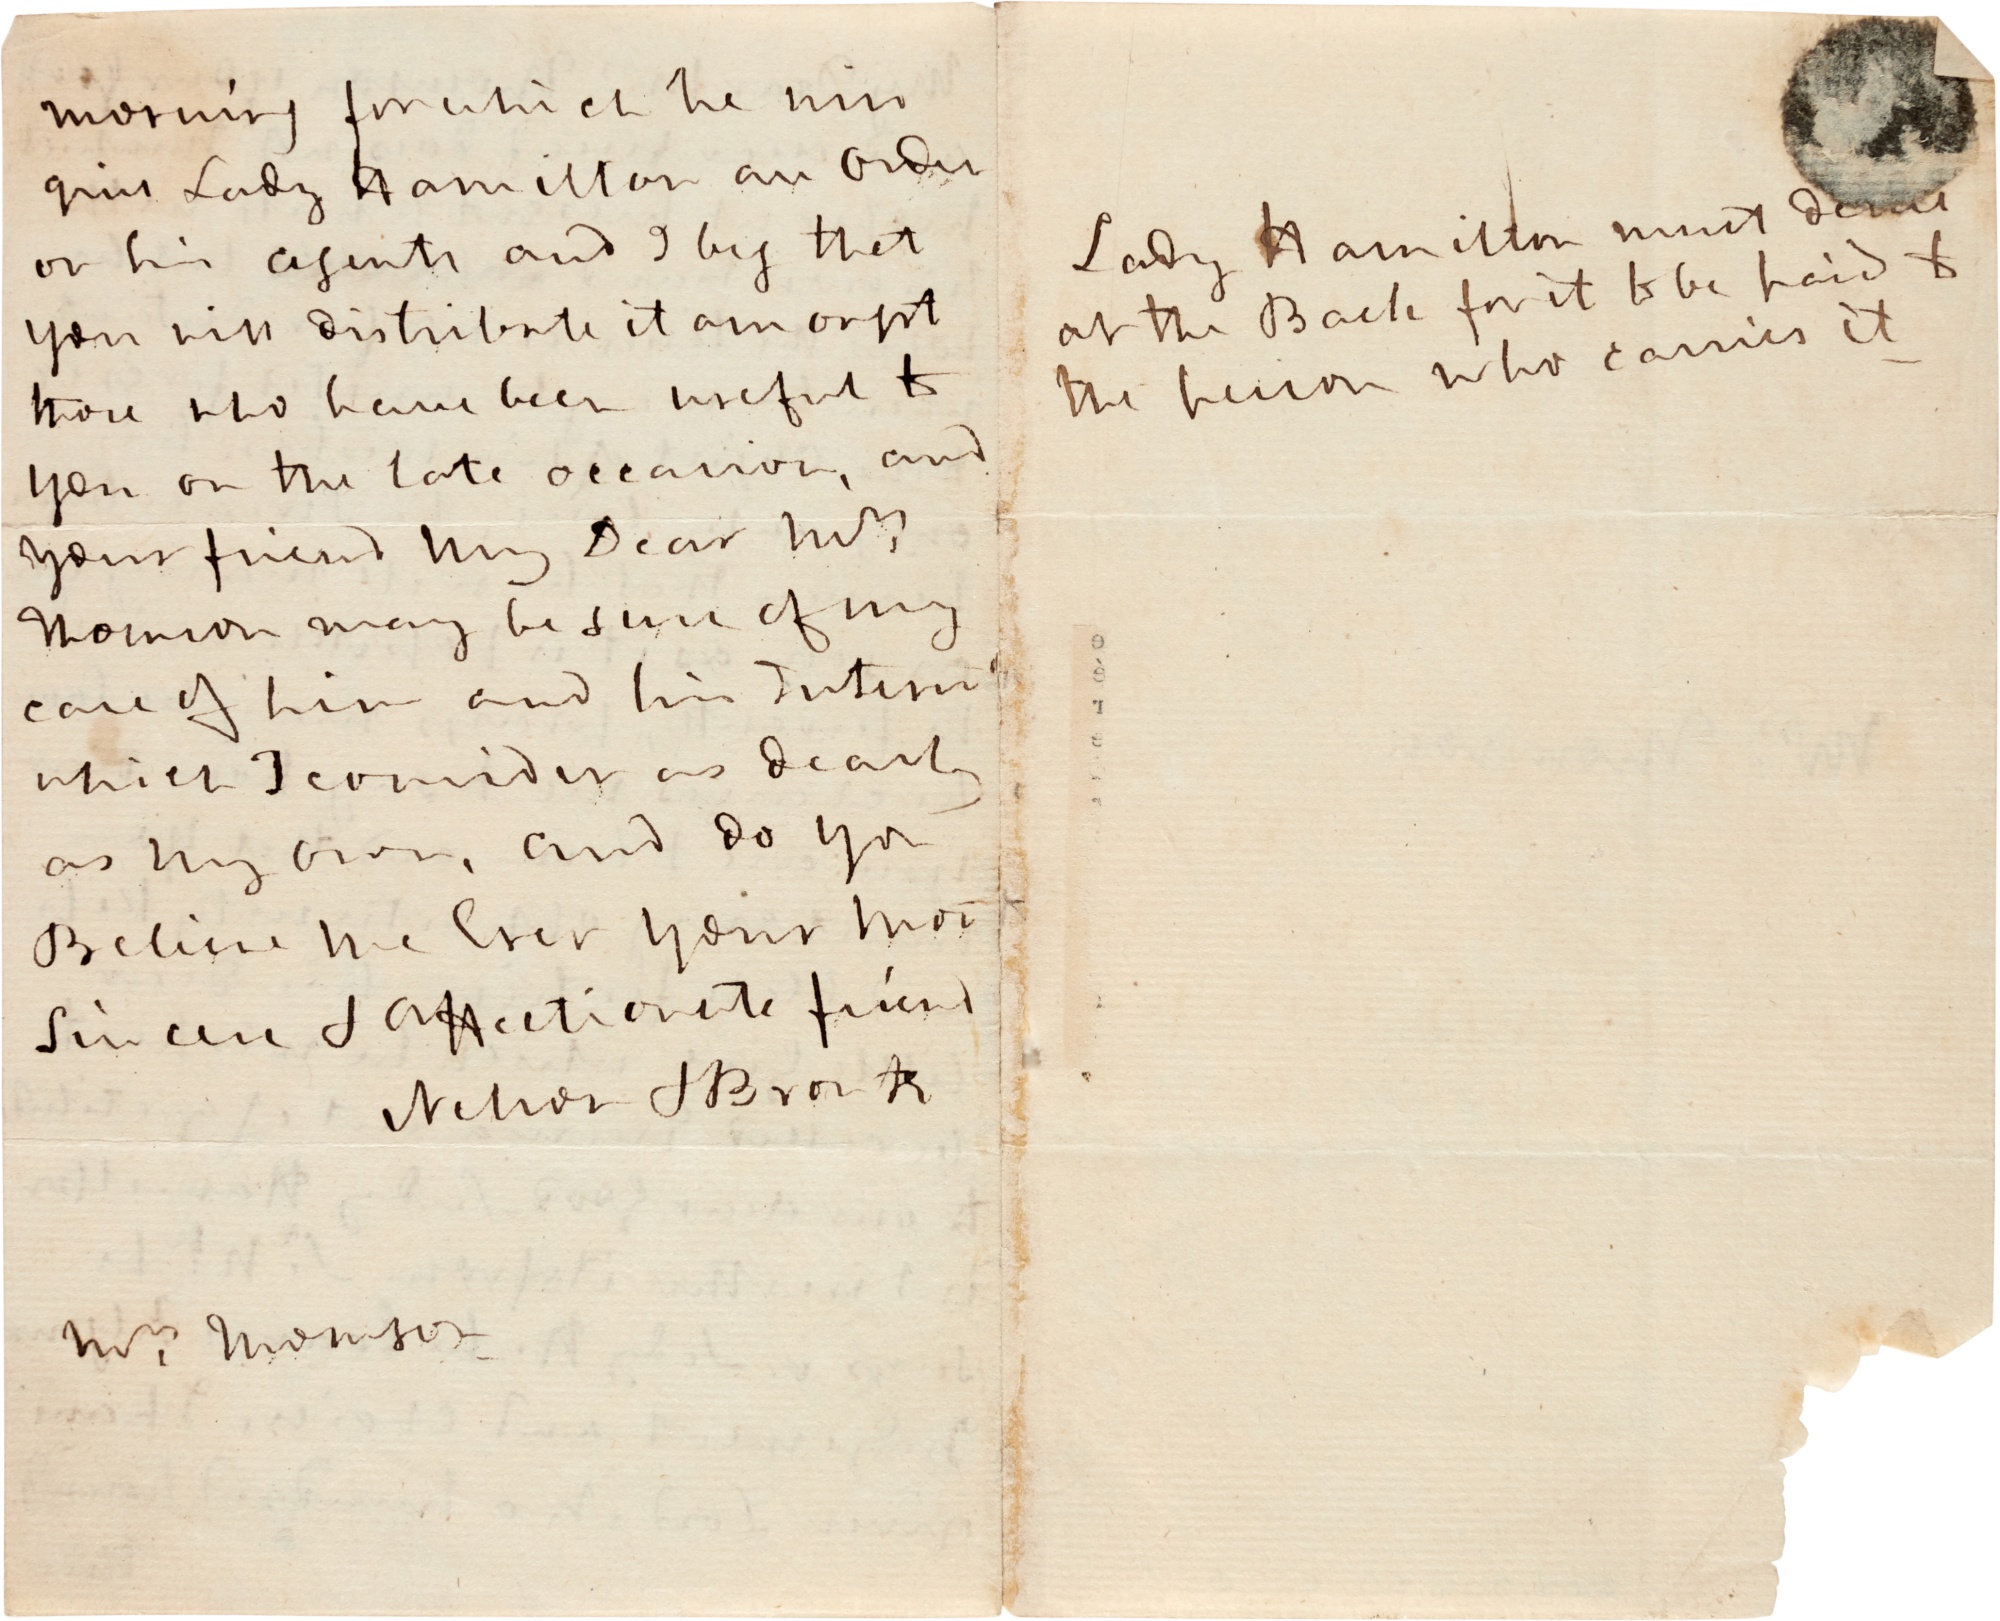 morning for which he will
give Lady Hamilton an order
on his agents and I beg that
you will distribute it amongst
those who have been useful to
you on the late occasion, and
your friend My Dear Mrs.
Thomson may be sure of my
care of him and his Interest
which I consider as dearly
as my own, and do you
Believe me Ever your most
Sincere & Affectionate friend
Nelson & Bronte
Mrs. Thomson
Lady Hamilton must desire
at the Back for it to be paid to
the person who carries it